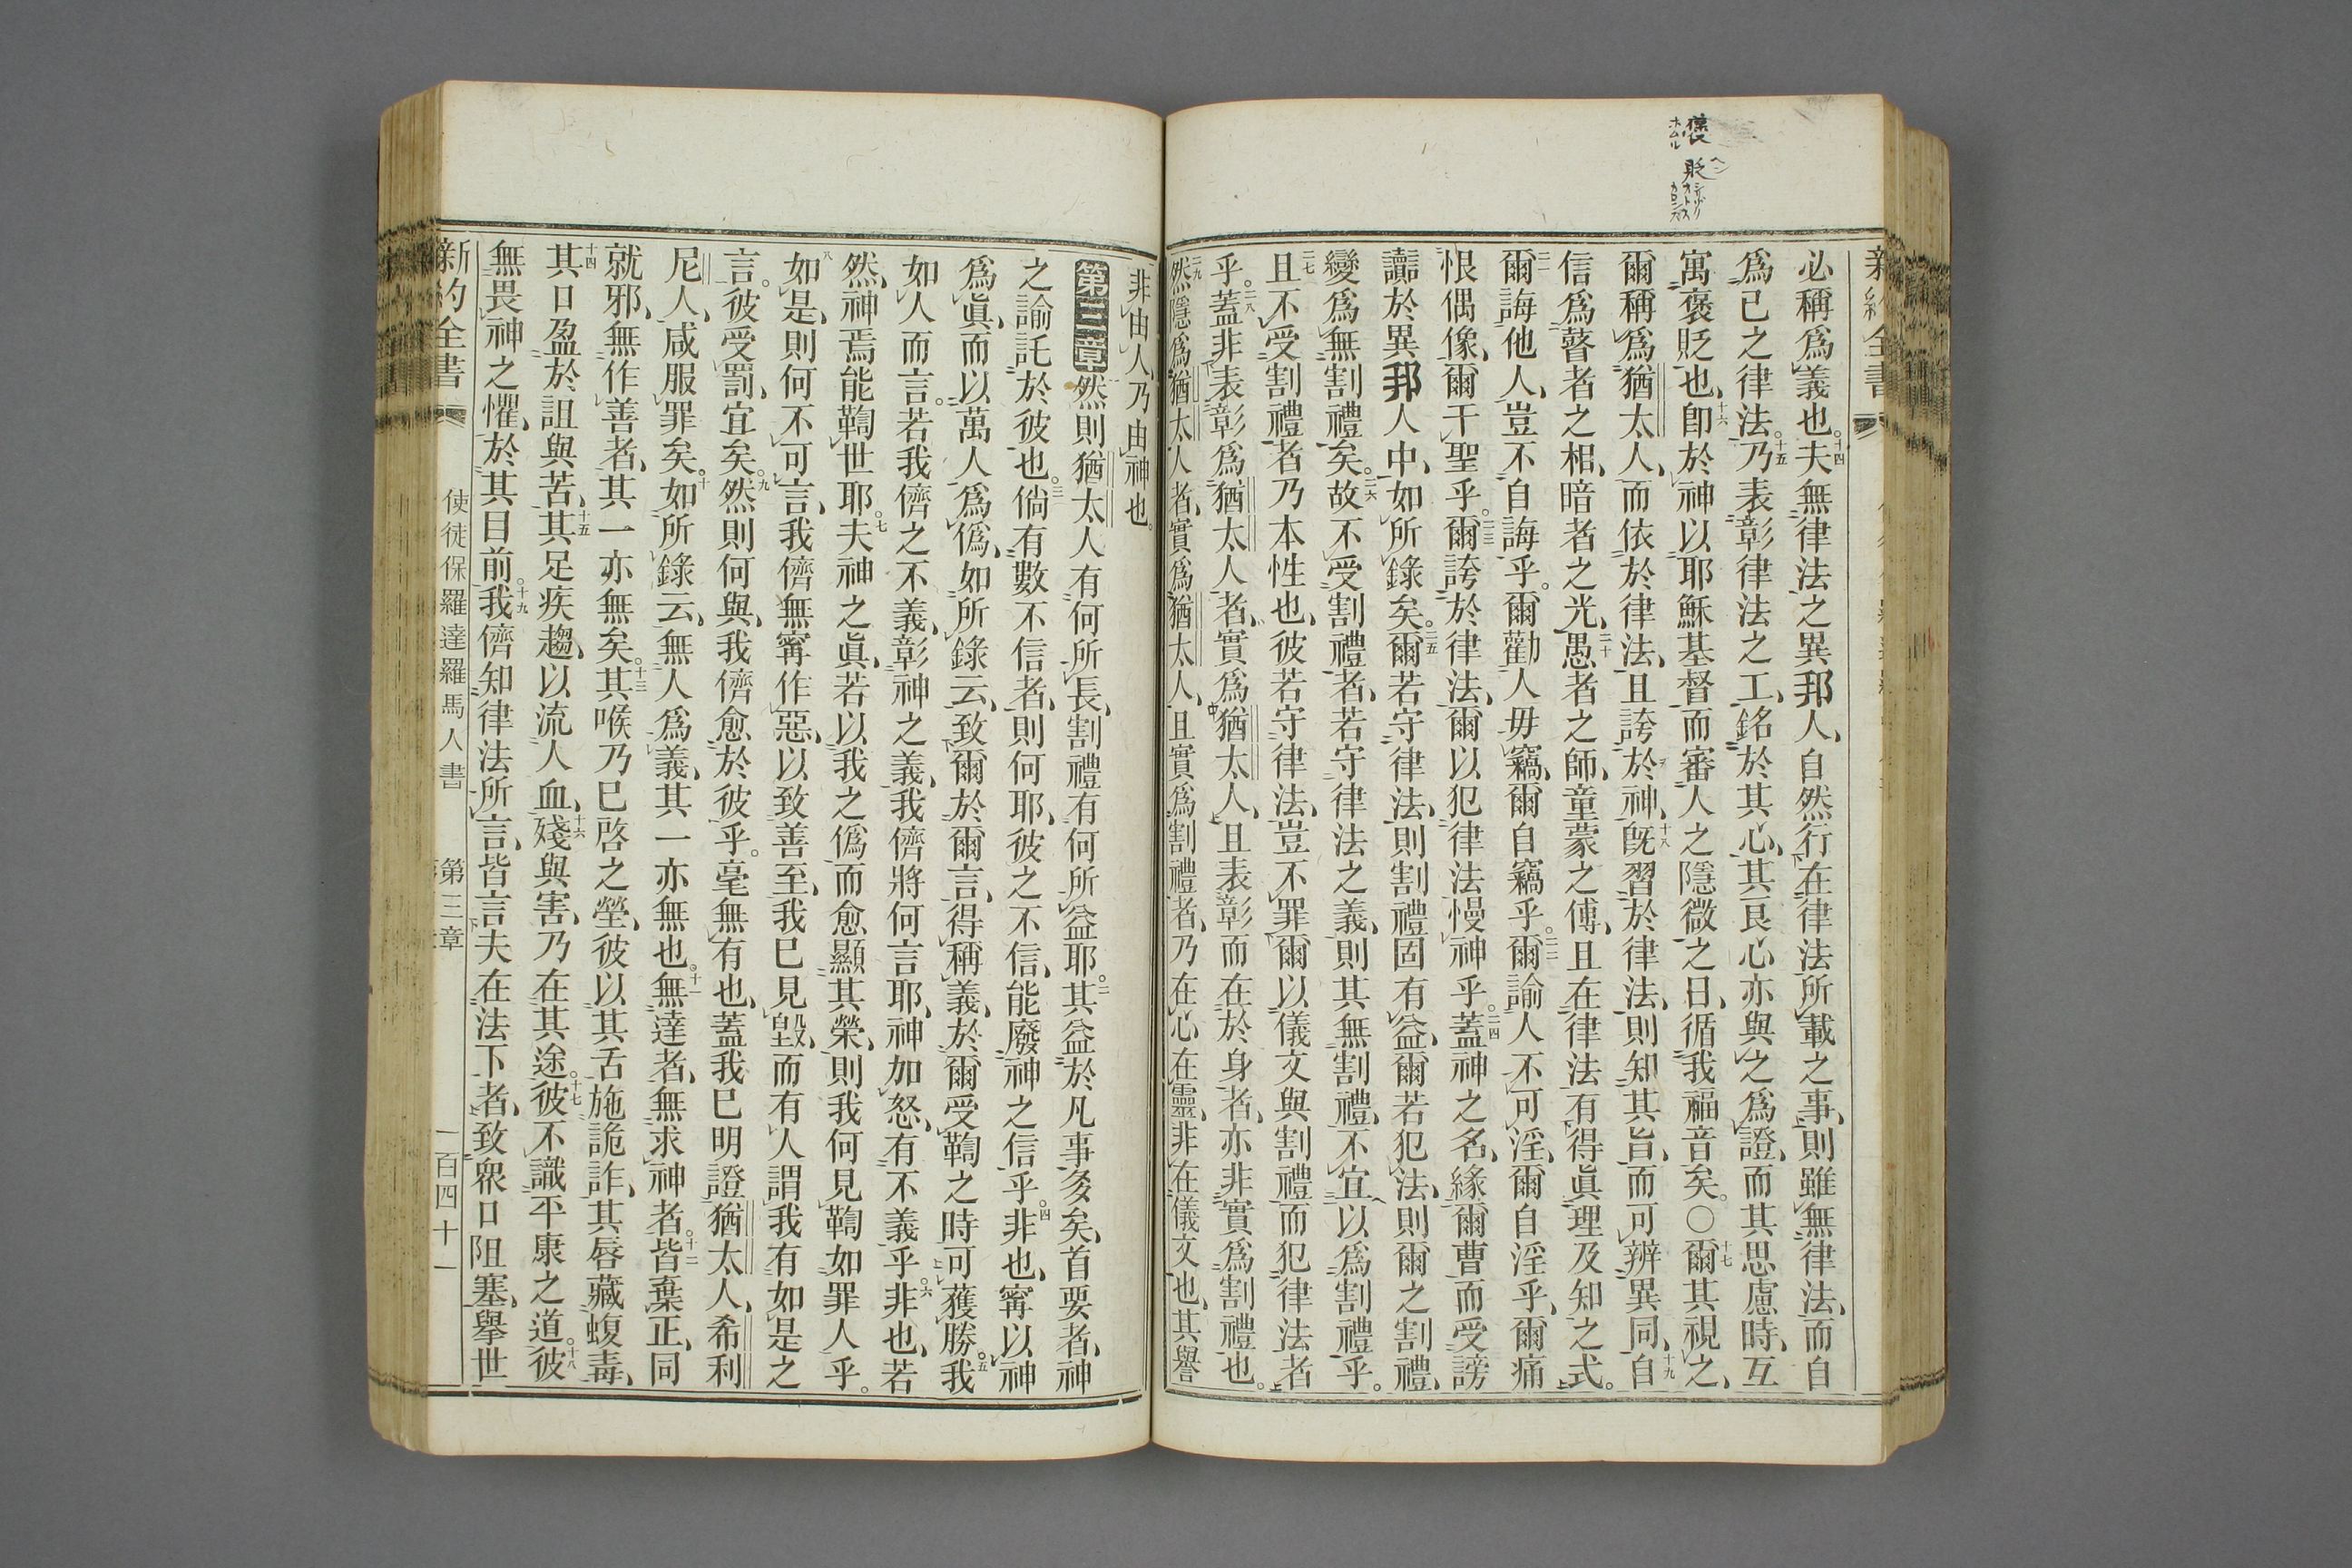 褒 貶
ホムル
ヘン
新約全書
必稱爲義也。十四夫無律法之異邦人、自然行在律法所載之事、則雖無律法、而自
爲己之律法。十五乃表彰律法之工、銘於其心、其良心亦與之爲證、而其思慮時、互
寓褒貶也、十六卽於神以耶穌基督而審人之隱微之日、循我福音矣。〇十七爾其視之、
爾稱爲猶太人、而依於律法、且誇於神、十八旣習於律法、則知其旨、而可辨異同、十九自
信爲瞽者之相、暗者之光、二十愚者之師、童蒙之傅、且在律法有得眞理及知之式。
二一爾誨他人、豈不自誨乎。爾勸人毋竊、爾自竊乎。二二爾諭人不可淫、爾自淫乎、爾痛
恨偶像、爾干聖乎。二三爾誇於律法、爾以犯律法慢神乎。二四蓋神之名、緣爾曹而受謗
讟於異邦人中、如所錄矣。二五爾若守律法、則割禮固有益、爾若犯法、則爾之割禮、
變爲無割禮矣。二六故不受割禮者、若守律法之義、則其無割禮、不宜以爲割禮乎。
二七且不受割禮者、乃本性也、彼若守律法、豈不罪爾以儀文與割禮而犯律法者
乎。二八蓋非表彰爲猶太人者、實爲猶太人、且表彰而在於身者、亦非實爲割禮也。
二九然隱爲猶太人者、實爲猶太人、且實爲割禮者、乃在心在靈、非在儀文也、其譽
非由人、乃由神也。
第三章 然則猶太人有何所長、割禮有何所益耶。二其益於凡事多矣、首要者、神
之諭託於彼也。三倘有數不信者、則何耶、彼之不信、能廢神之信乎。四非也、寧以神
爲眞、而以萬人爲僞、如所錄云、致爾於爾言、得稱義、於爾受鞫之時可獲勝。五我
如人而言。若我儕之不義、彰神之義、我儕將何言耶、神加怒、有不義乎。六非也、若
然、神焉能鞫世耶。七夫神之眞、若以我之僞而愈顯其榮、則我何見鞫如罪人乎。
八如是、則何不可言、我儕無寧作惡、以致善至、我已見毀、而有人謂我有如是之
言。彼受罰、宜矣。九然則何與、我儕愈於彼乎。毫無有也、蓋我已明證猶太人、希利
尼人、咸服罪矣。十如所錄云、無人爲義、其一亦無也。十一無達者、無求神者。十二皆棄正、同
就邪、無作善者、其一亦無矣。十三其喉乃已啓之塋、彼以其舌施詭詐、其唇藏蝮毒、
十四其口盈於詛與苦、十五其足疾趨、以流人血、十六殘與害、乃在其途。十七彼不識平康之道。十八彼
無畏神之懼、於其目前。十九我儕知律法所言、皆言夫在法下者、致衆口阻塞、擧世
新約全書
使徒保羅達羅馬人書
第三章
一百四十一